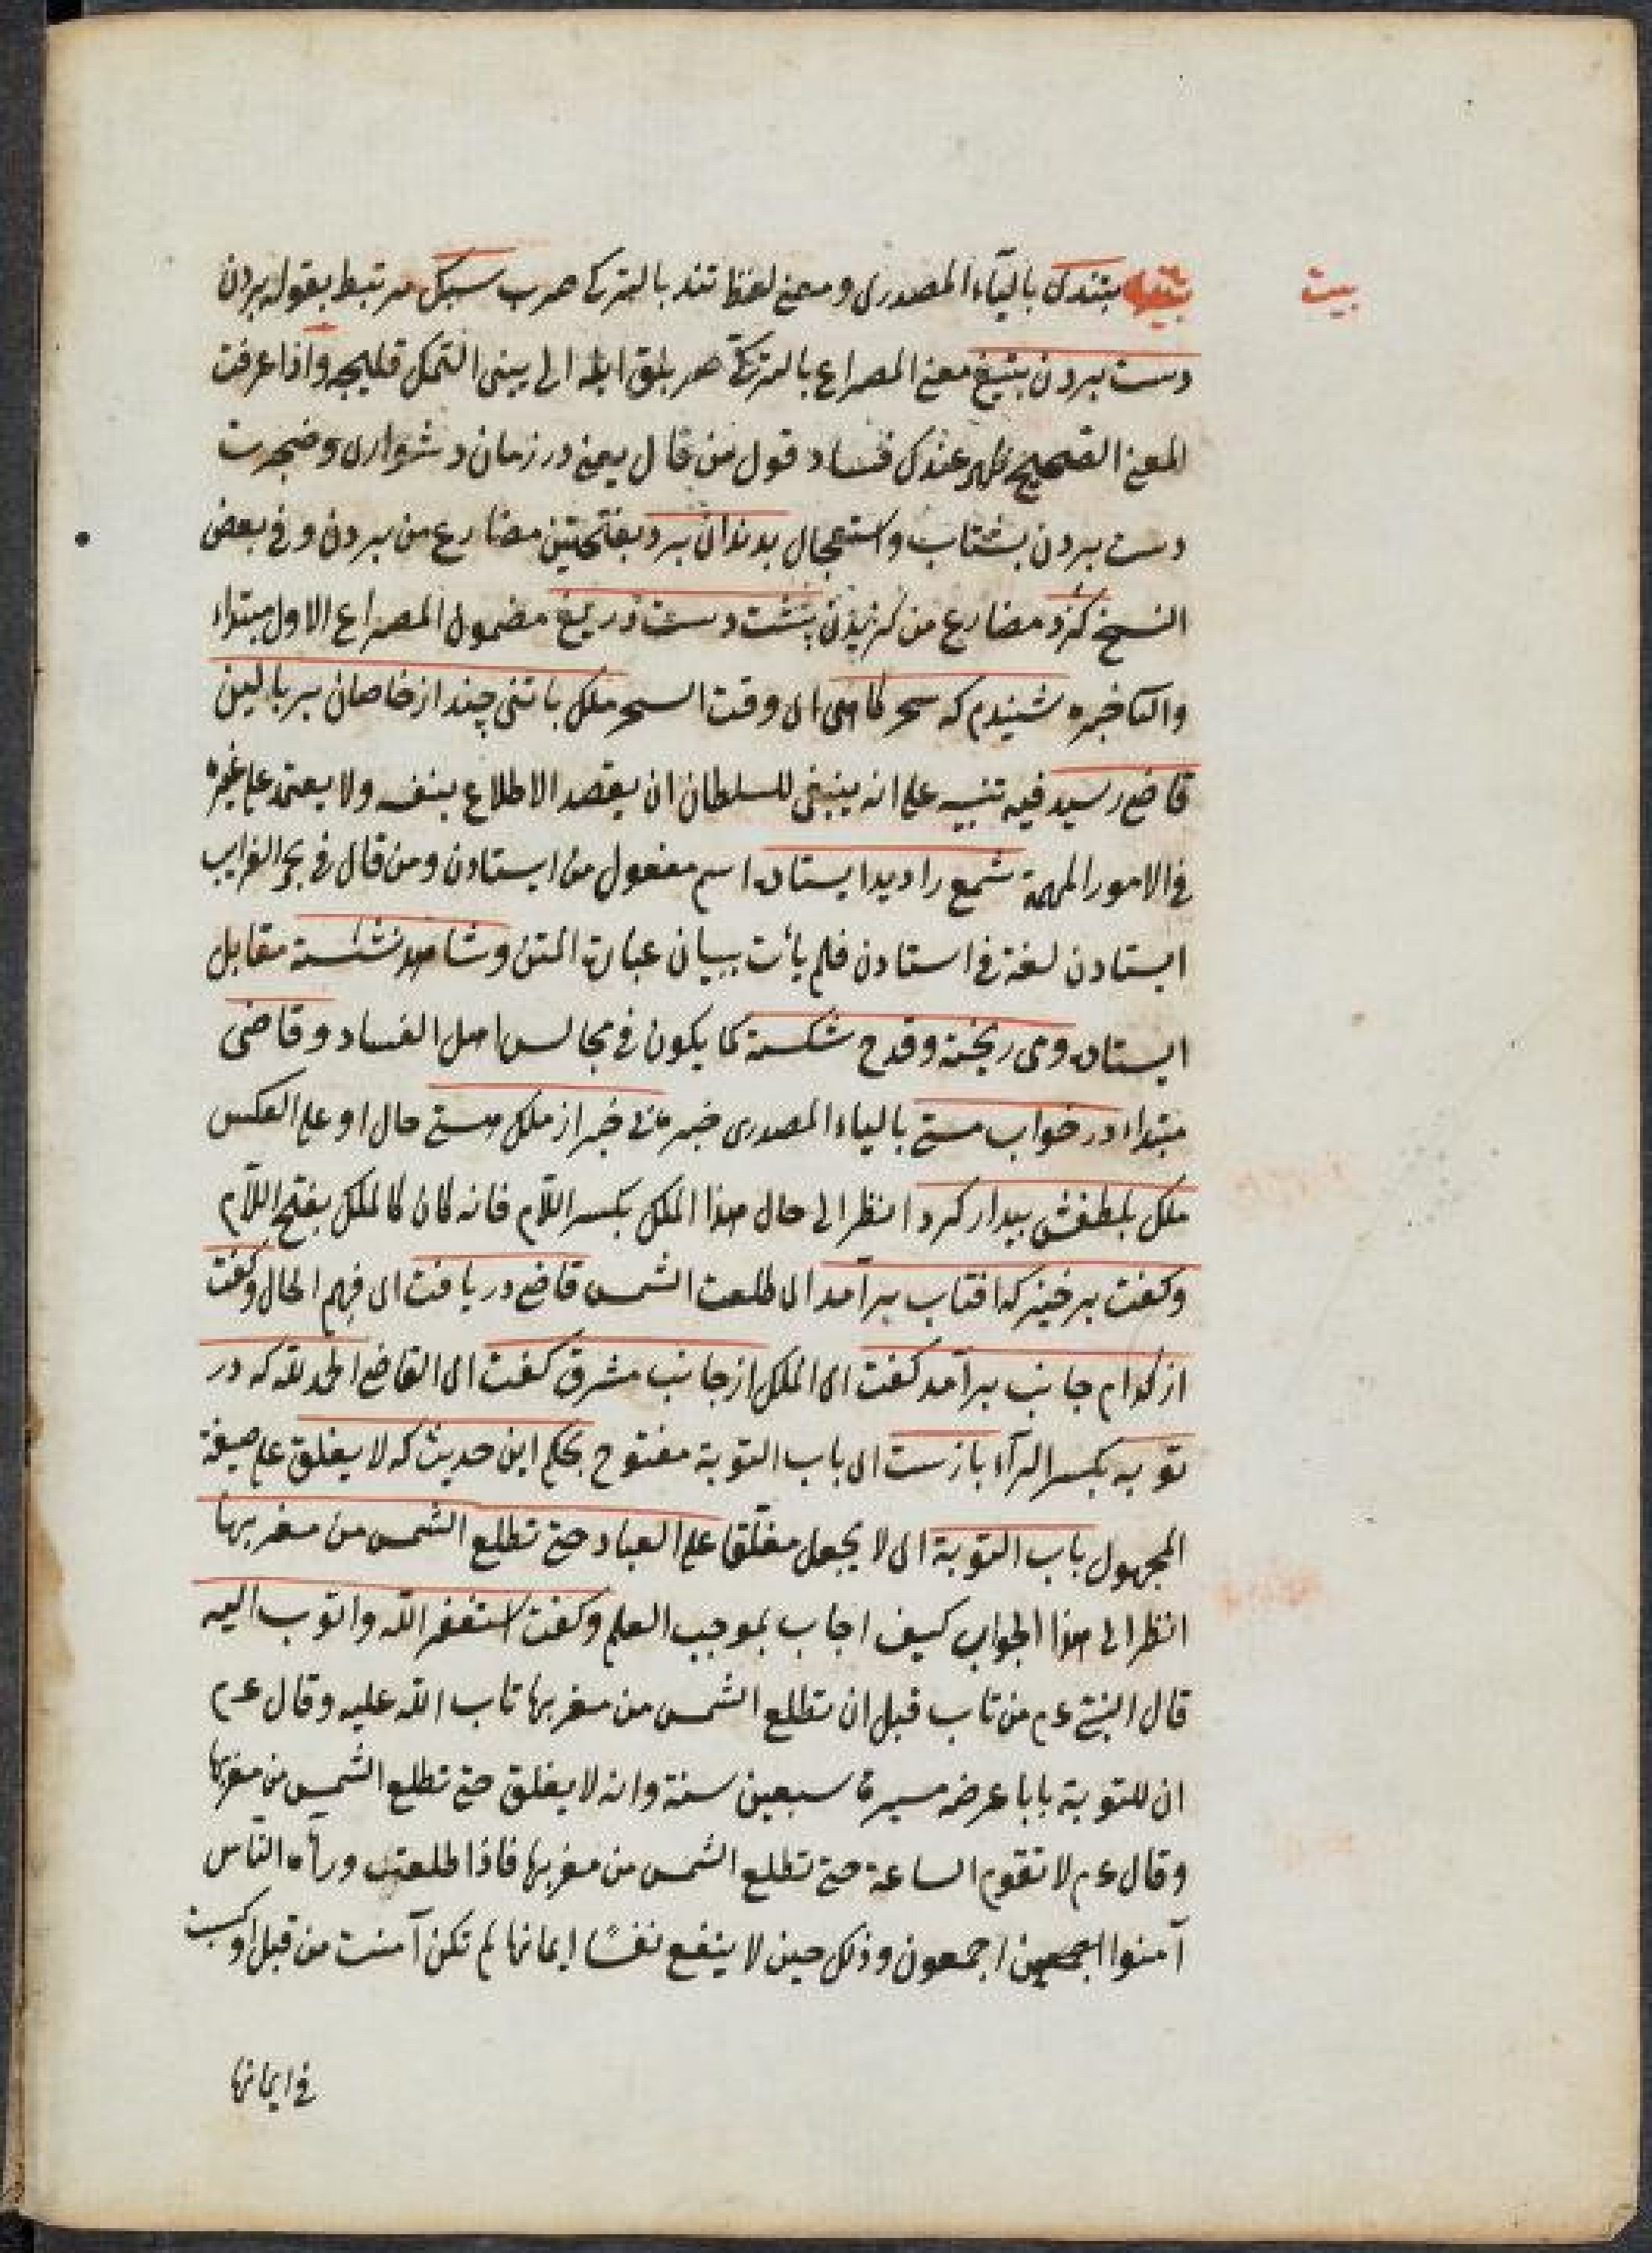 بيت
بتندى بالياء المصدرى ومعنى لفظ تند بالتركى صرب سبك مرتبط بقوله بردن
دست بردن بتيغ معنى المصراع بالتركى صربلق ايله الى يينى التمك قليجه واذا عرفت
المعنى الصحيح ظهر عندك فساد قول من قال يعنى در زمان دشوارى وضجرت
دست بردن بشتاب واستعجال بدندان برد بفتحتين مضارع من بردن وفى بعض
النسخ كزد مضارع من كزيدن پشت دست دريغ مضمون المصراع الاول مبتداء
والثانى خبره شنيدم كه سحركاهى اى وقت السحر ملك با تنى چند از خاصان بر بالين
قاضى رسيد فيه تنبيه على انه ينبغى للسلطان ان يقصد الاطلاع بنفسه ولا يعتمد على غيره
فى الامور المهمة شمع را ديد ايستاده اسم مفعول من ايستادن ومن قال فى بحر الغرايب
ايستادن لغة فى استادن فلم يأت ببيان عبارة المتن وشاهد نشسته مقابل
ايستاده ومى ريخته وقدح شكسته كما يكون فى مجالس اهل الفساد وقاضى
مبتداء در خواب مستى بالياء المصدرى خبره بى خبر از ملك هستى حال او على العكس
ملك بلطفش بيدار كرد انظر الى حال هذا الملك بكسر اللام فانه كان كالملك بفتح اللام
وكفت برخيز كه افتاب برآمد اى طلعت الشمس قاضى دريافت اى فهم الحال وكفت
از كدام جانب برآمد كفت اى الملك از جانب مشرق كفت اى القاضى الحمد لله كه در
توبه بكسر الراء بازست اى باب التوبة مفتوح بحكم اين حديث كه لا يغلق على صيغة
المجهول باب التوبة اى لا يجعل مغلقا على العباد حتى تطلع الشمس من مغربها
انظر الى هذا الجواب كيف اجاب بموجب العلم وكفت استغفر الله واتوب اليه
قال النبى عم من تاب قبل ان تطلع الشمس من مغربها تاب الله عليه وقال عم
ان للتوبة بابا عرضه مسيرة سبعين سنة وانه لا يغلق حتى تطلع الشمس من مغربها
وقال عم لا تقوم الساعة حتى تطلع الشمس من مغربها فاذا طلعت ورأه الناس
آمنوا اجمعون وذلك حين لا ينفع نفسًا ايمانها لم تكن آمنت من قبل او كسبت
فى ايمانها